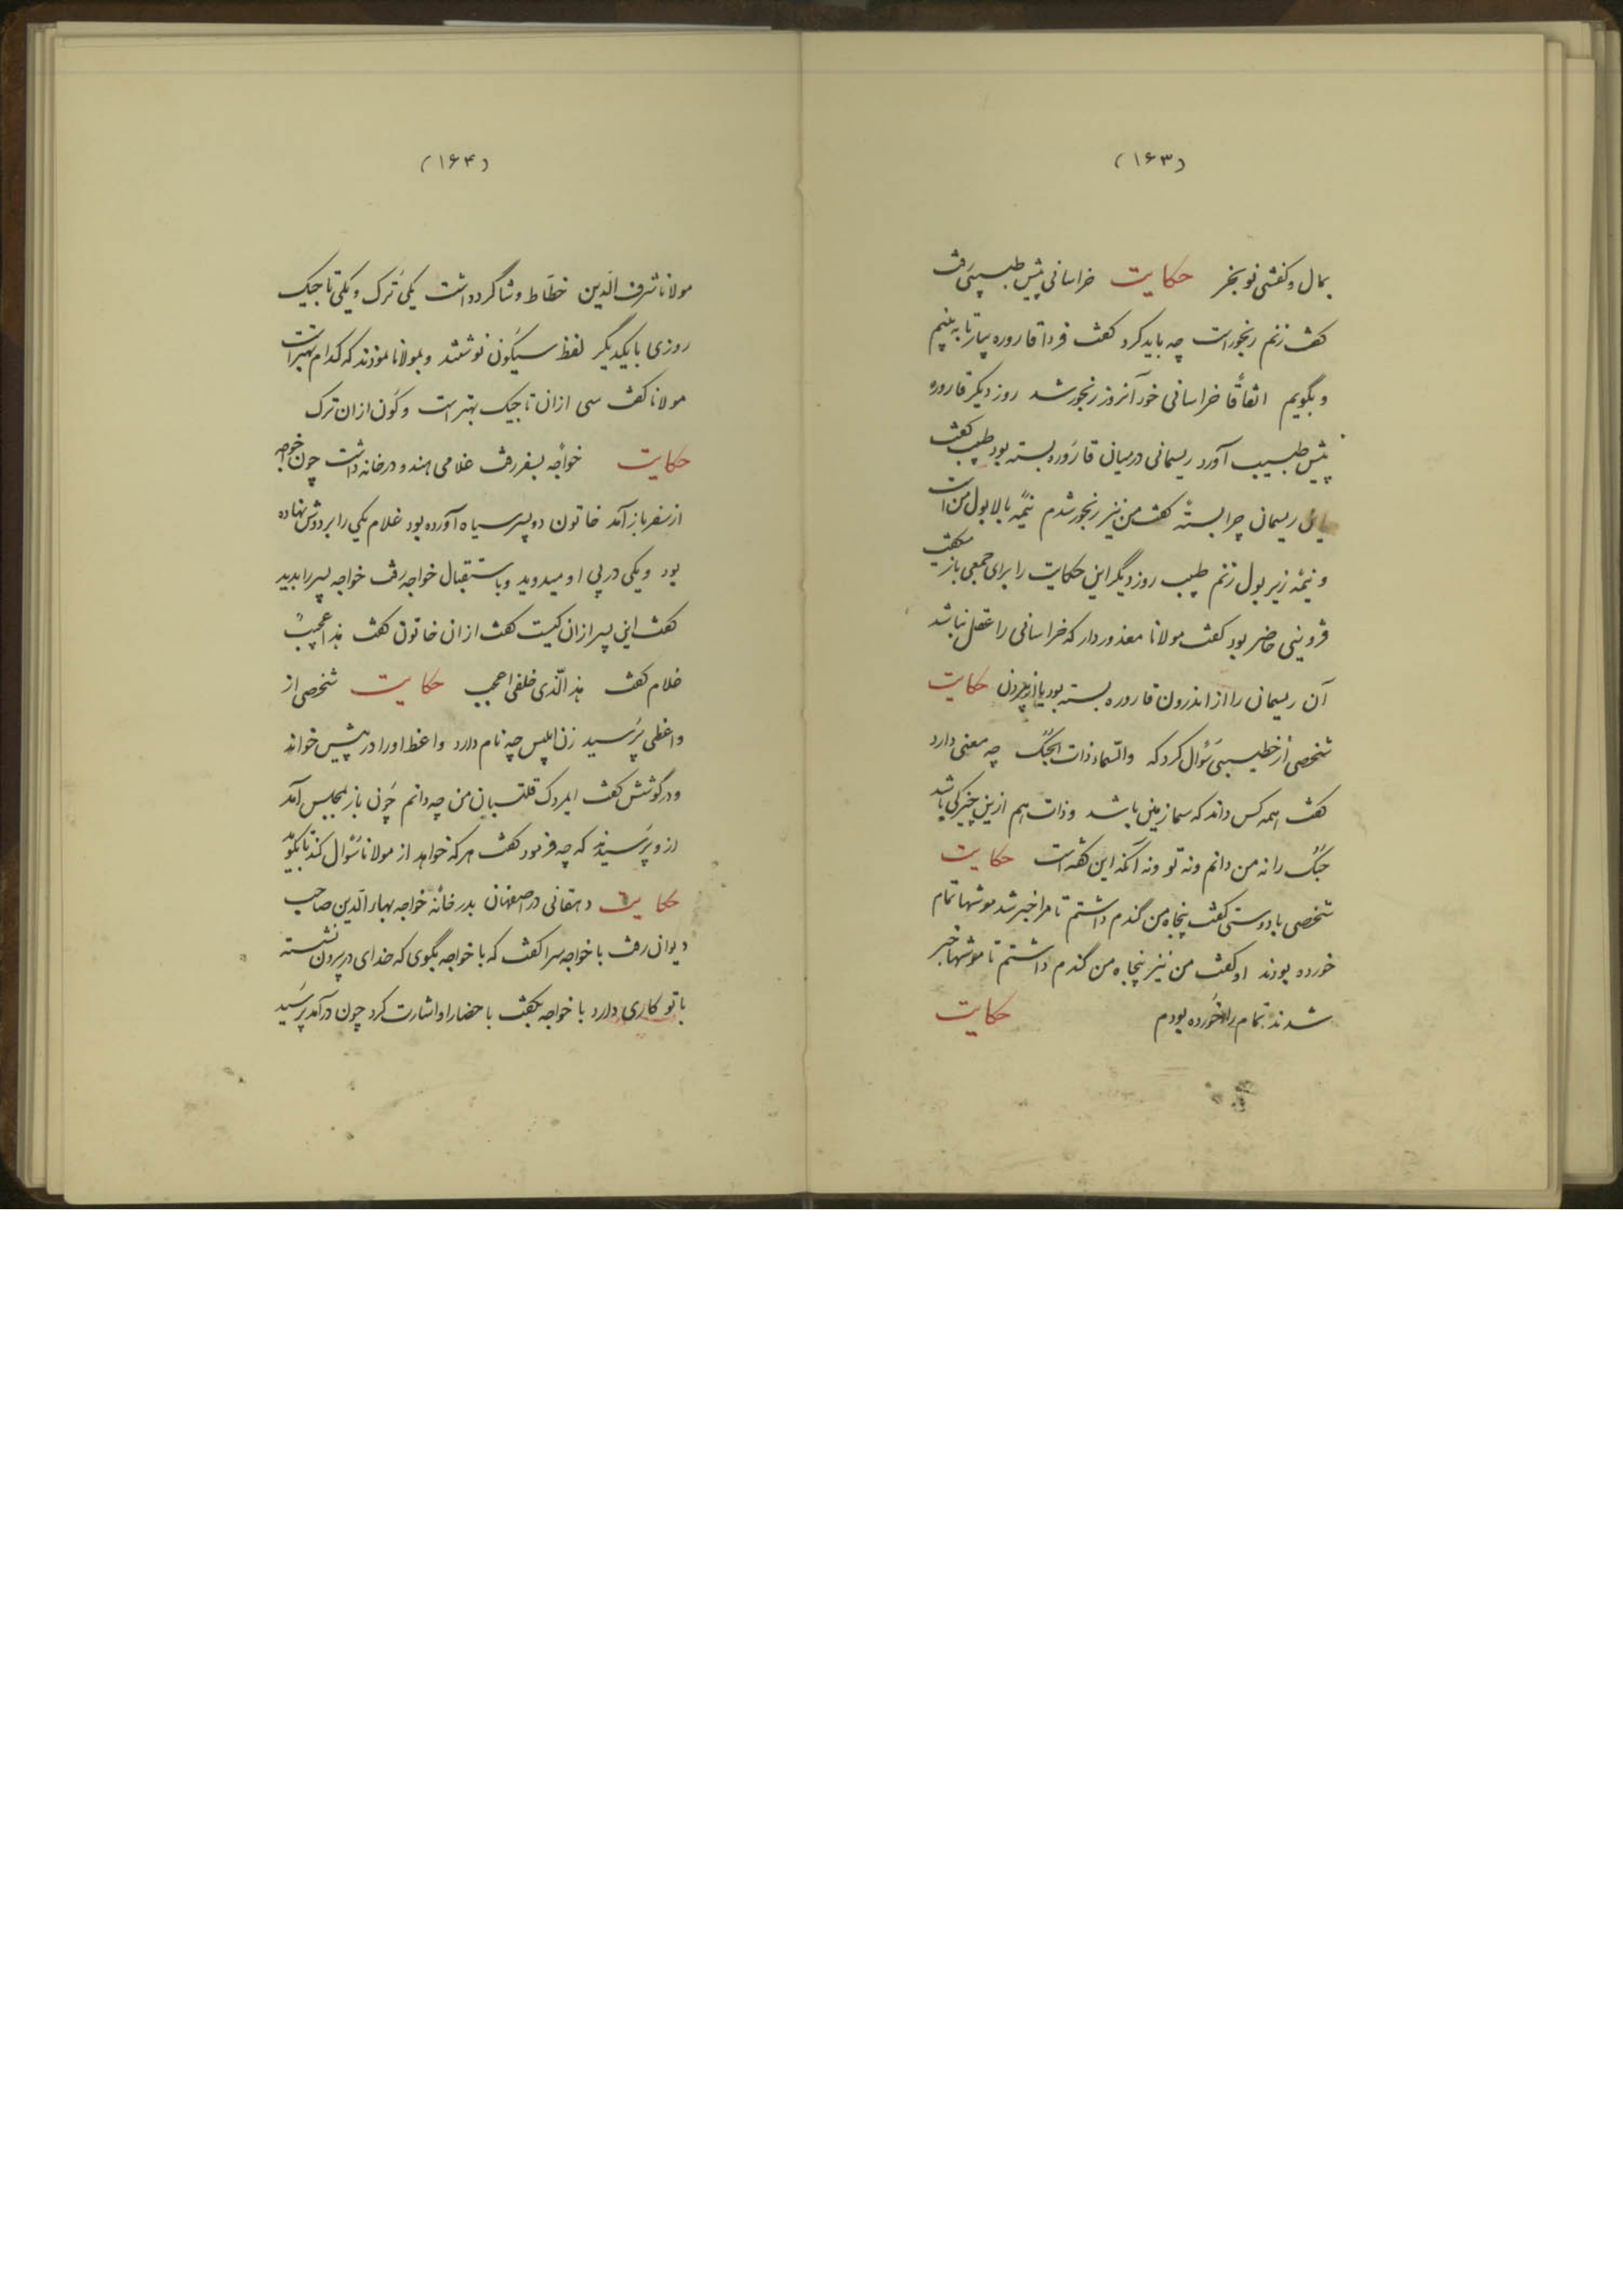 (۱۶۳)
بمال و کفشی نو بخر حکایت خراسانی پیش طبیبی رفت
گفت زنم رنجور است چه باید کرد گفت فردا قاروره بیار تا به بینم
و بگویم اتفاقًا خراسانی خود آنروز رنجور شد روز دیگر قاروره
پیش طبیب آورد ریسمانی در میان قاروره بسته بود طبیب گفت
این ریسمان چرا بستهٔ گفت من نیز رنجور شدم نیمهٔ بالا بول من است
و نیمهٔ زیر بول زنم طبیب روز دیگر این حکایت را برای جمعی باز میگفت
قزوینی حاضر بود گفت مولانا معذور دار که خراسانی را عقل نباشد
آن ریسمان را از اندرون قاروره بسته بود یا از بیرون حکایت
شخصی از خطیبی سؤال کرد که والسّماء ذات الحبک چه معنی دارد
گفت همه کس داند که سما زمین باشد و ذات هم ازین چیزکی باشد
حبک را نه من دانم و نه تو و نه آنکه این گفته است حکایت
شخصی با دوستی گفت پنجاه من گندم داشتم تا مرا خبر شد موشها تمام
خورده بودند او گفت من نیز پنجاه من گندم داشتم تا موشها خبر
شدند تمام را خورده بودم حکایت
(۱۶۴)
مولانا شرف الدّین خطّاط دو شاگرد داشت یکی تُرک و یکی تاجیک
روزی با یکدیگر لفظ سیکون نوشتند و بمولانا نمودند که کدام بهتر است
مولانا گفت سی ازان تاجیک بهتر است و کون ازان ترک
حکایت خواجهٔ بسفر رفت غلامی هندو در خانه داشت چون خواجه
از سفر باز آمد خاتون دو پسر سیاه آورده بود غلام یکی را بر دوش نهاده
بود و یکی در پی او میدوید و باستقبال خواجه رفت خواجه پسر را بدید
گفت این پسر ازان کیست گفت ازان خاتون گفت هذا عجیبٌ
غلام گفت هذ الّذی خلفی اعجب حکایت شخصی از
واعظی پُرسید زن ابلیس چه نام دارد واعظ او را در پیش خواند
و در گوشش گفت ایمردک قلتبان من چه دانم چون باز بمجلس آمد
ازو پرسیدند که چه فرمود گفت هر که خواهد از مولانا سؤال کند تا بگوید
حکایت دهقانی در اصفهان بدر خانهٔ خواجه بهار الدّین صاحب
دیوان رفت با خواجه سرا گفت که با خواجه بگوی که خدای در بیرون نشسته
با تو کاری دارد با خواجه بگفت باحضار او اشارت کرد چون در آمد پرسید